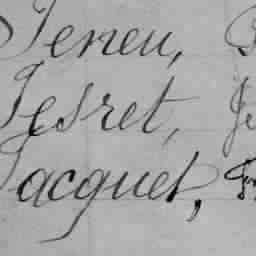 Jeneu,
Jesret,
Jacquet,